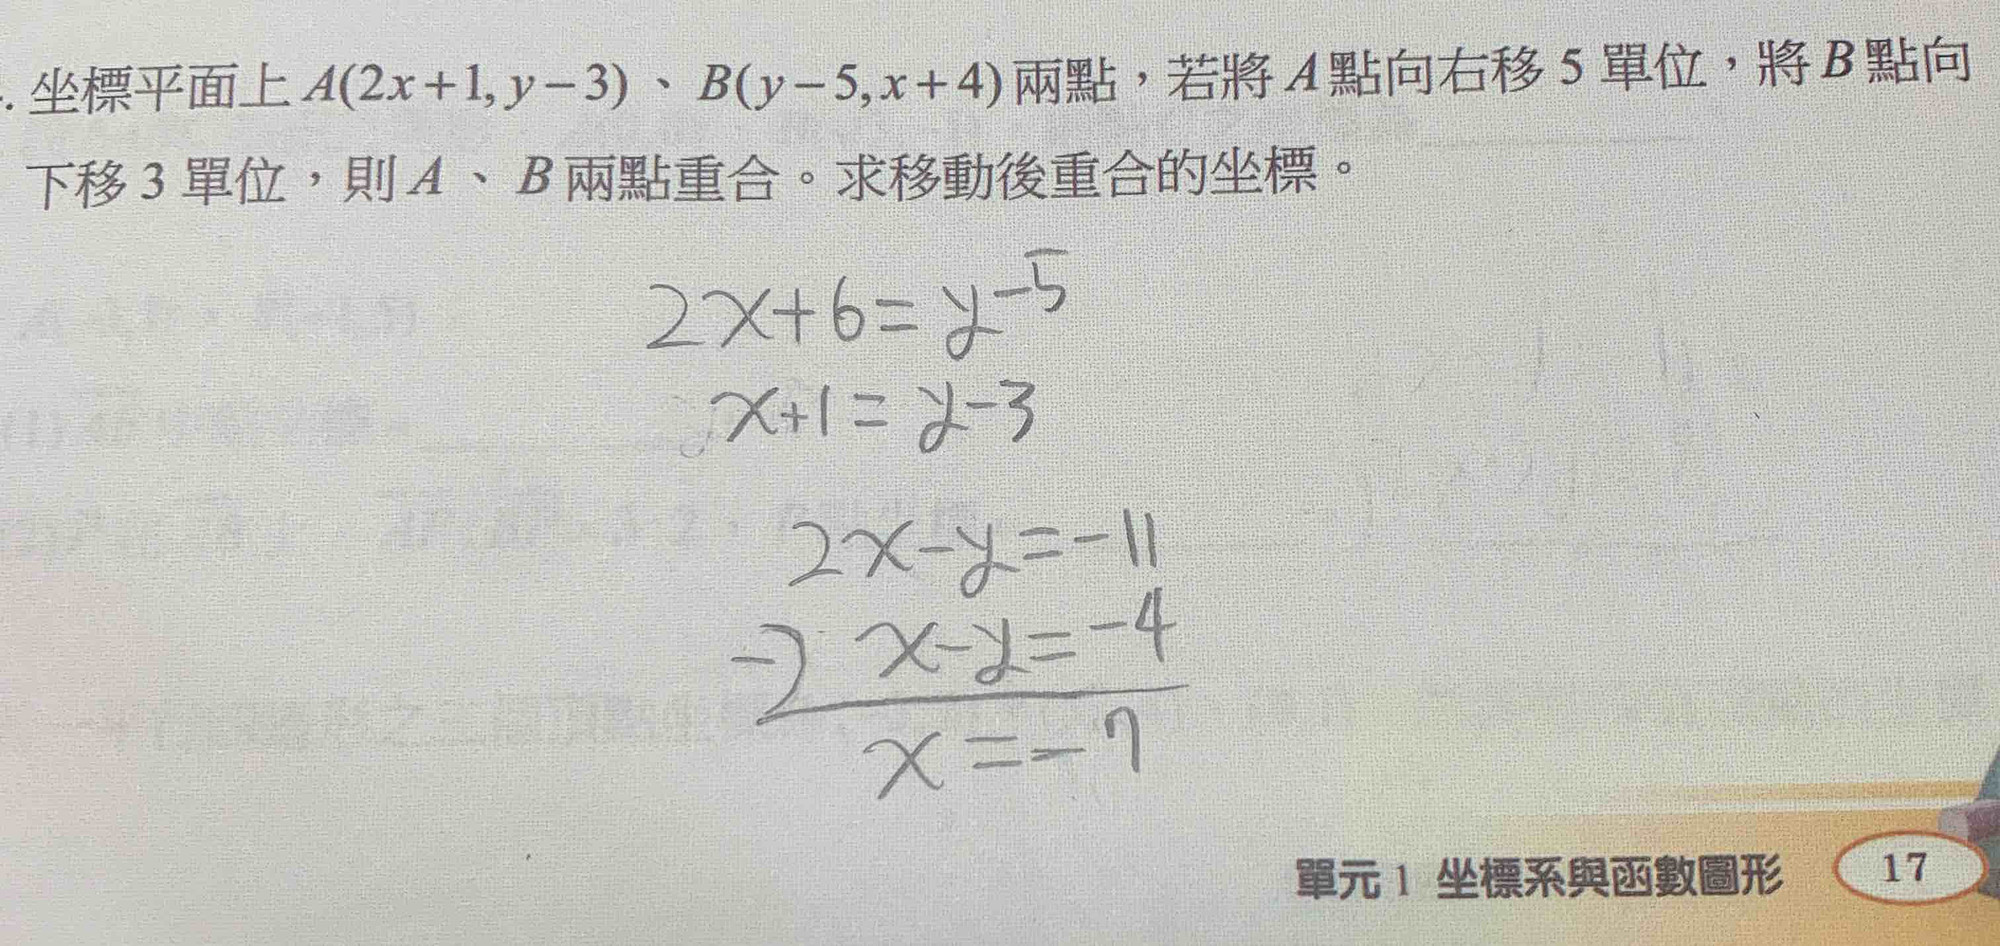 . 坐標平面上 A(2x+1, y−3)、B(y−5, x+4) 兩點，若將 A 點向右移 5 單位，將 B 點向
下移 3 單位，則 A、B 兩點重合。求移動後重合的坐標。
2x+6=y-5
x+1=y-3
2x-y=-11
-) x-y=-4
x=-7
單元 1 坐標系與函數圖形 17